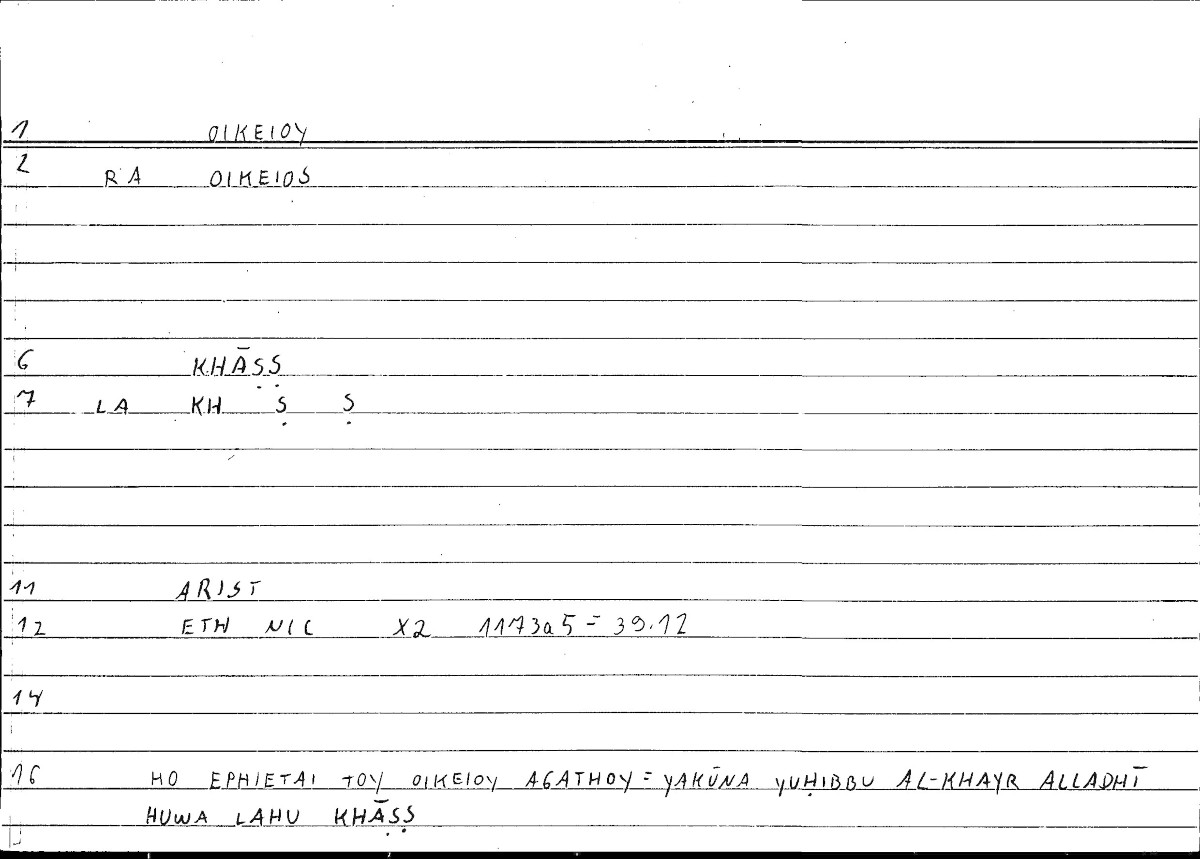 1 OIKEIOY
2 RA OIKEIOS
6 KHĀṢṢ
7 LA KH Ṣ Ṣ
11 ARIST
12 ETH NIC X2 1173a5 = 39.12
14
16 HO EPHIETAI TOY OIKEIOY AGATHOY = YAKŪNA YUḤIBBU AL-KHAYR ALLADHĪ
HUWA LAHU KHĀṢṢ